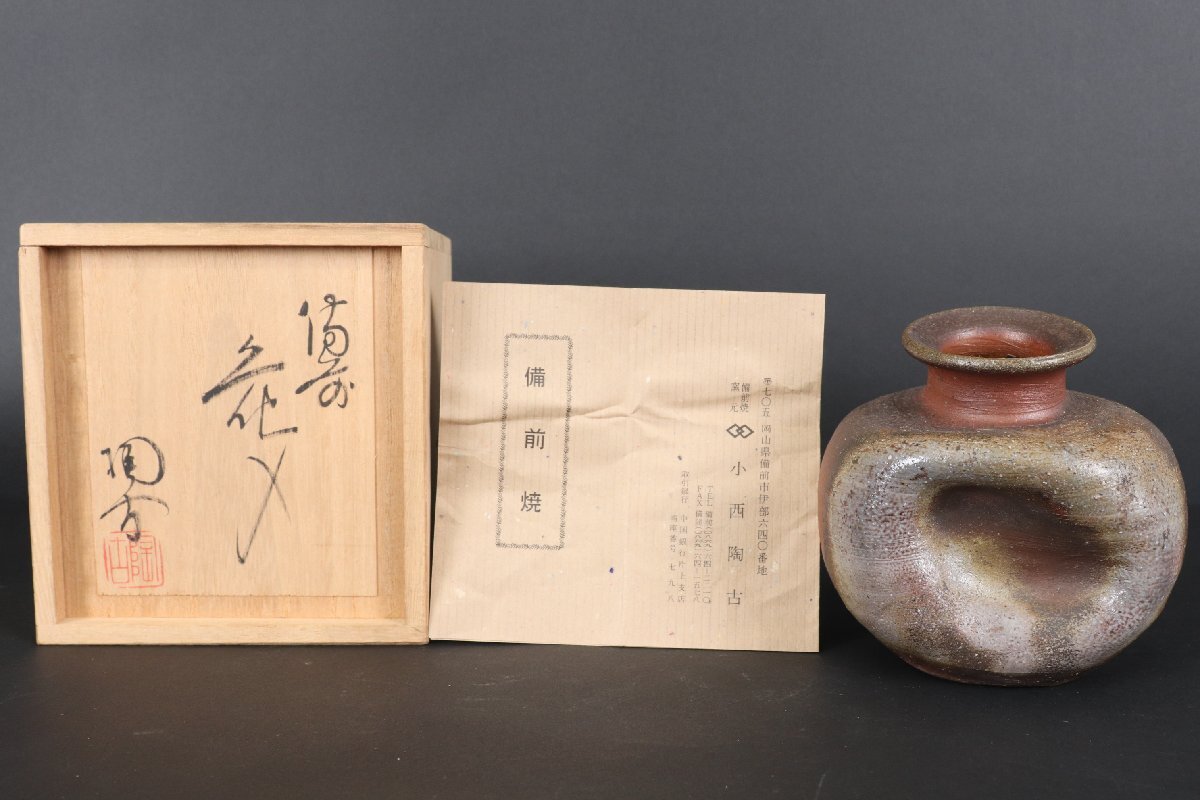 備前
花入
陶古
陶古
備前焼
〒七〇五 岡山県備前市伊部六四〇番地
備前焼
窯元
小西陶古
取引銀行 中国銀行片上支店